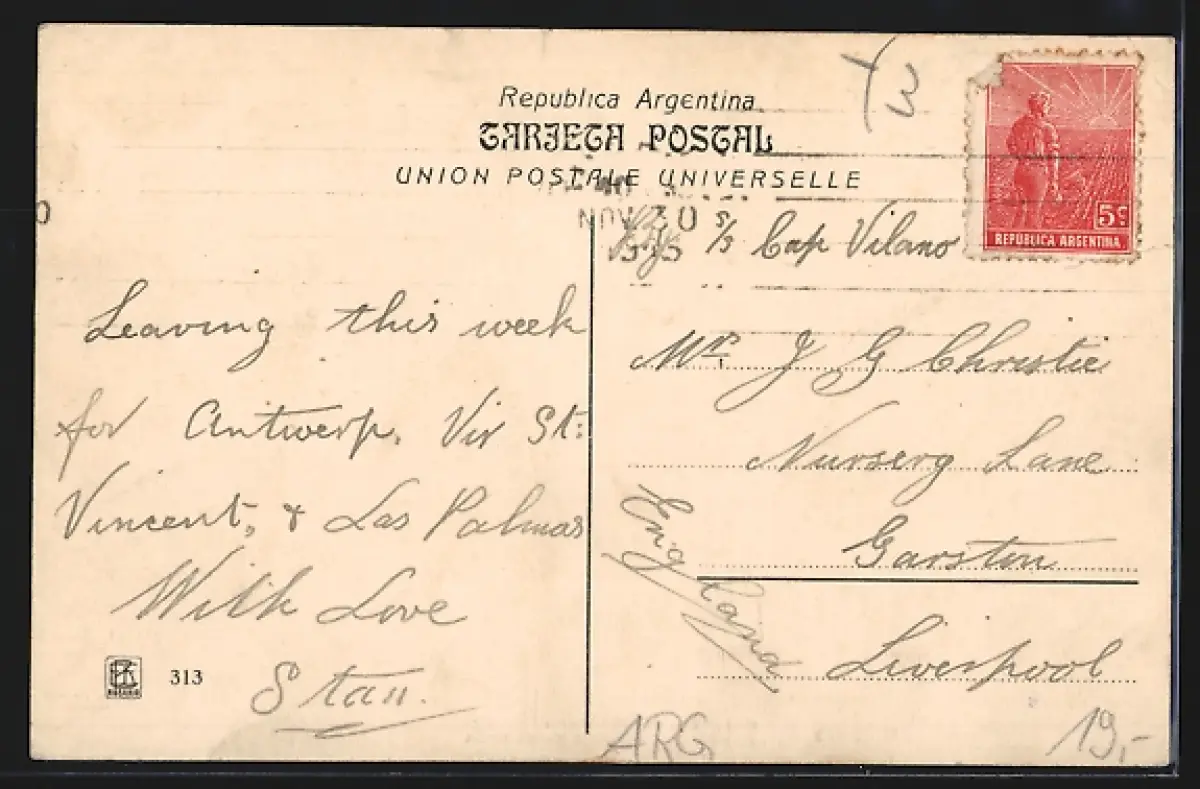 Republica Argentina
TARJETA POSTAL
UNION POSTALE UNIVERSELLE
NOV 30
5c
REPUBLICA ARGENTINA
Per S/S Cap Vilano
Leaving this week
for Antwerp, Vir St:
Vincent, & Las Palmas
With Love
Stan.
313
Mrs J G Christie
Nursery Lane
Garston
Liverpool
England
ARG
19,-